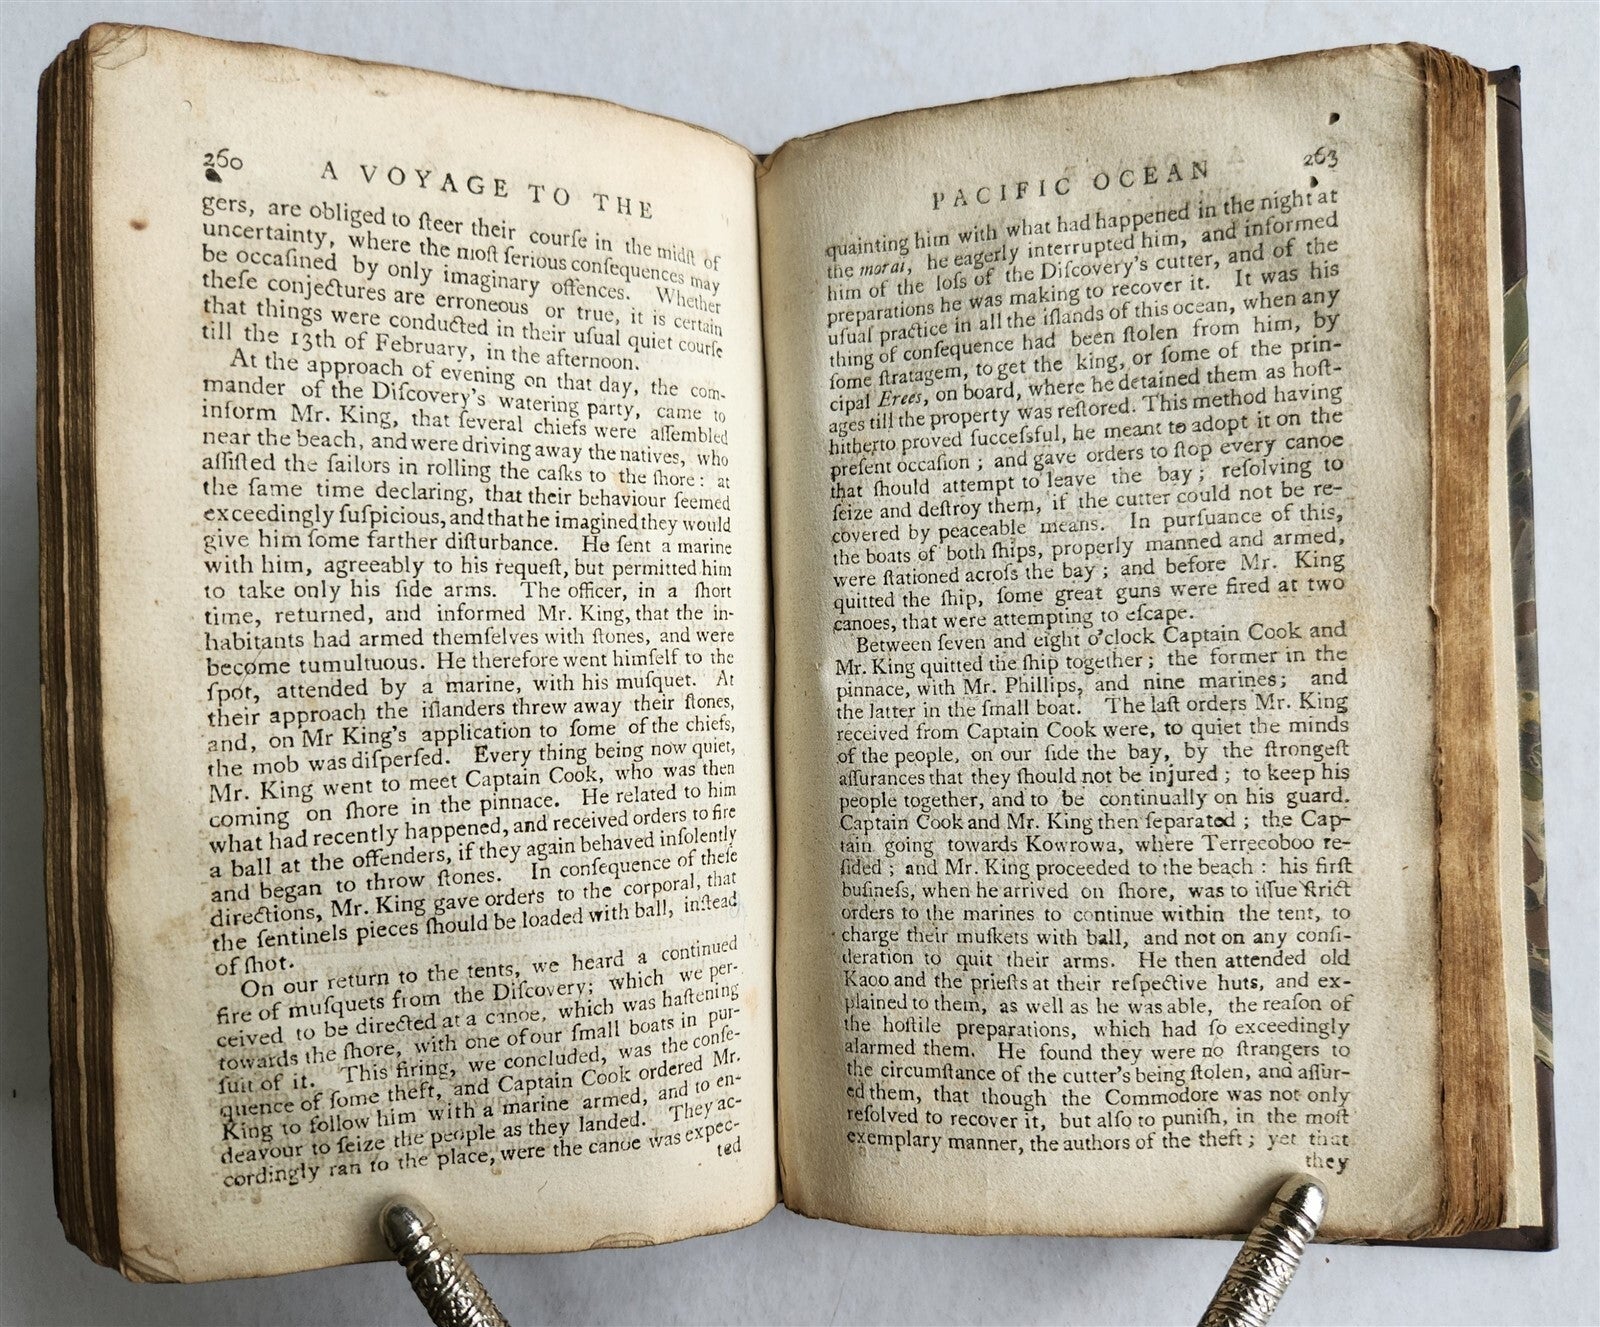 260
A VOYAGE TO THE
gers, are obliged to ſteer their courſe in the midſt of
uncertainty, where the moſt ſerious conſequences may
be occaſined by only imaginary offences. Whether
theſe conjectures are erroneous or true, it is certain
that things were conducted in their uſual quiet courſe
till the 13th of February, in the afternoon.
At the approach of evening on that day, the com-
mander of the Diſcovery's watering party, came to
inform Mr. King, that ſeveral chiefs were aſſembled
near the beach, and were driving away the natives, who
aſſiſted the ſailors in rolling the caſks to the ſhore : at
the ſame time declaring, that their behaviour ſeemed
exceedingly ſuſpicious, and that he imagined they would
give him ſome farther diſturbance. He ſent a marine
with him, agreeably to his requeſt, but permitted him
to take only his ſide arms. The officer, in a ſhort
time, returned, and informed Mr. King, that the in-
habitants had armed themſelves with ſtones, and were
become tumultuous. He therefore went himſelf to the
ſpot, attended by a marine, with his muſquet. At
their approach the iſlanders threw away their ſtones,
and, on Mr King's application to ſome of the chiefs,
the mob was diſperſed. Every thing being now quiet,
Mr. King went to meet Captain Cook, who was then
coming on ſhore in the pinnace. He related to him
what had recently happened, and received orders to fire
a ball at the offenders, if they again behaved inſolently
and began to throw ſtones. In conſequence of theſe
directions, Mr. King gave orders to the corporal, that
the ſentinels pieces ſhould be loaded with ball, inſtead
of ſhot.
On our return to the tents, we heard a continued
fire of muſquets from the Diſcovery; which we per-
ceived to be directed at a canoe, which was haſtening
towards the ſhore, with one of our ſmall boats in pur-
ſuit of it. This firing, we concluded, was the conſe-
quence of ſome theft, and Captain Cook ordered Mr.
King to follow him with a marine armed, and to en-
deavour to ſeize the people as they landed. They ac-
cordingly ran to the place, were the canoe was expec-
ted
PACIFIC OCEAN
263
quainting him with what had happened in the night at
the morai, he eagerly interrupted him, and informed
him of the loſs of the Diſcovery's cutter, and of the
preparations he was making to recover it. It was his
uſual practice in all the iſlands of this ocean, when any
thing of conſequence had been ſtolen from him, by
ſome ſtratagem, to get the king, or ſome of the prin-
cipal Erees, on board, where he detained them as hoſt-
ages till the property was reſtored. This method having
hitherto proved ſucceſsful, he meant to adopt it on the
preſent occaſion ; and gave orders to ſtop every canoe
that ſhould attempt to leave the bay; reſolving to
ſeize and deſtroy them, if the cutter could not be re-
covered by peaceable means. In purſuance of this,
the boats of both ſhips, properly manned and armed,
were ſtationed acroſs the bay ; and before Mr. King
quitted the ſhip, ſome great guns were fired at two
canoes, that were attempting to eſcape.
Between ſeven and eight o'clock Captain Cook and
Mr. King quitted the ſhip together ; the former in the
pinnace, with Mr. Phillips, and nine marines; and
the latter in the ſmall boat. The laſt orders Mr. King
received from Captain Cook were, to quiet the minds
of the people, on our ſide the bay, by the ſtrongeſt
aſſurances that they ſhould not be injured ; to keep his
people together, and to be continually on his guard.
Captain Cook and Mr. King then ſeparated ; the Cap-
tain going towards Kowrowa, where Terrecoboo re-
ſided ; and Mr. King proceeded to the beach : his firſt
buſineſs, when he arrived on ſhore, was to iſſue ſtrict
orders to the marines to continue within the tent, to
charge their muſkets with ball, and not on any conſi-
deration to quit their arms. He then attended old
Kaoo and the prieſts at their reſpective huts, and ex-
plained to them, as well as he was able, the reaſon of
the hoſtile preparations, which had ſo exceedingly
alarmed them. He found they were no ſtrangers to
the circumſtance of the cutter's being ſtolen, and aſſur-
ed them, that though the Commodore was not only
reſolved to recover it, but alſo to puniſh, in the moſt
exemplary manner, the authors of the theft ; yet that
they